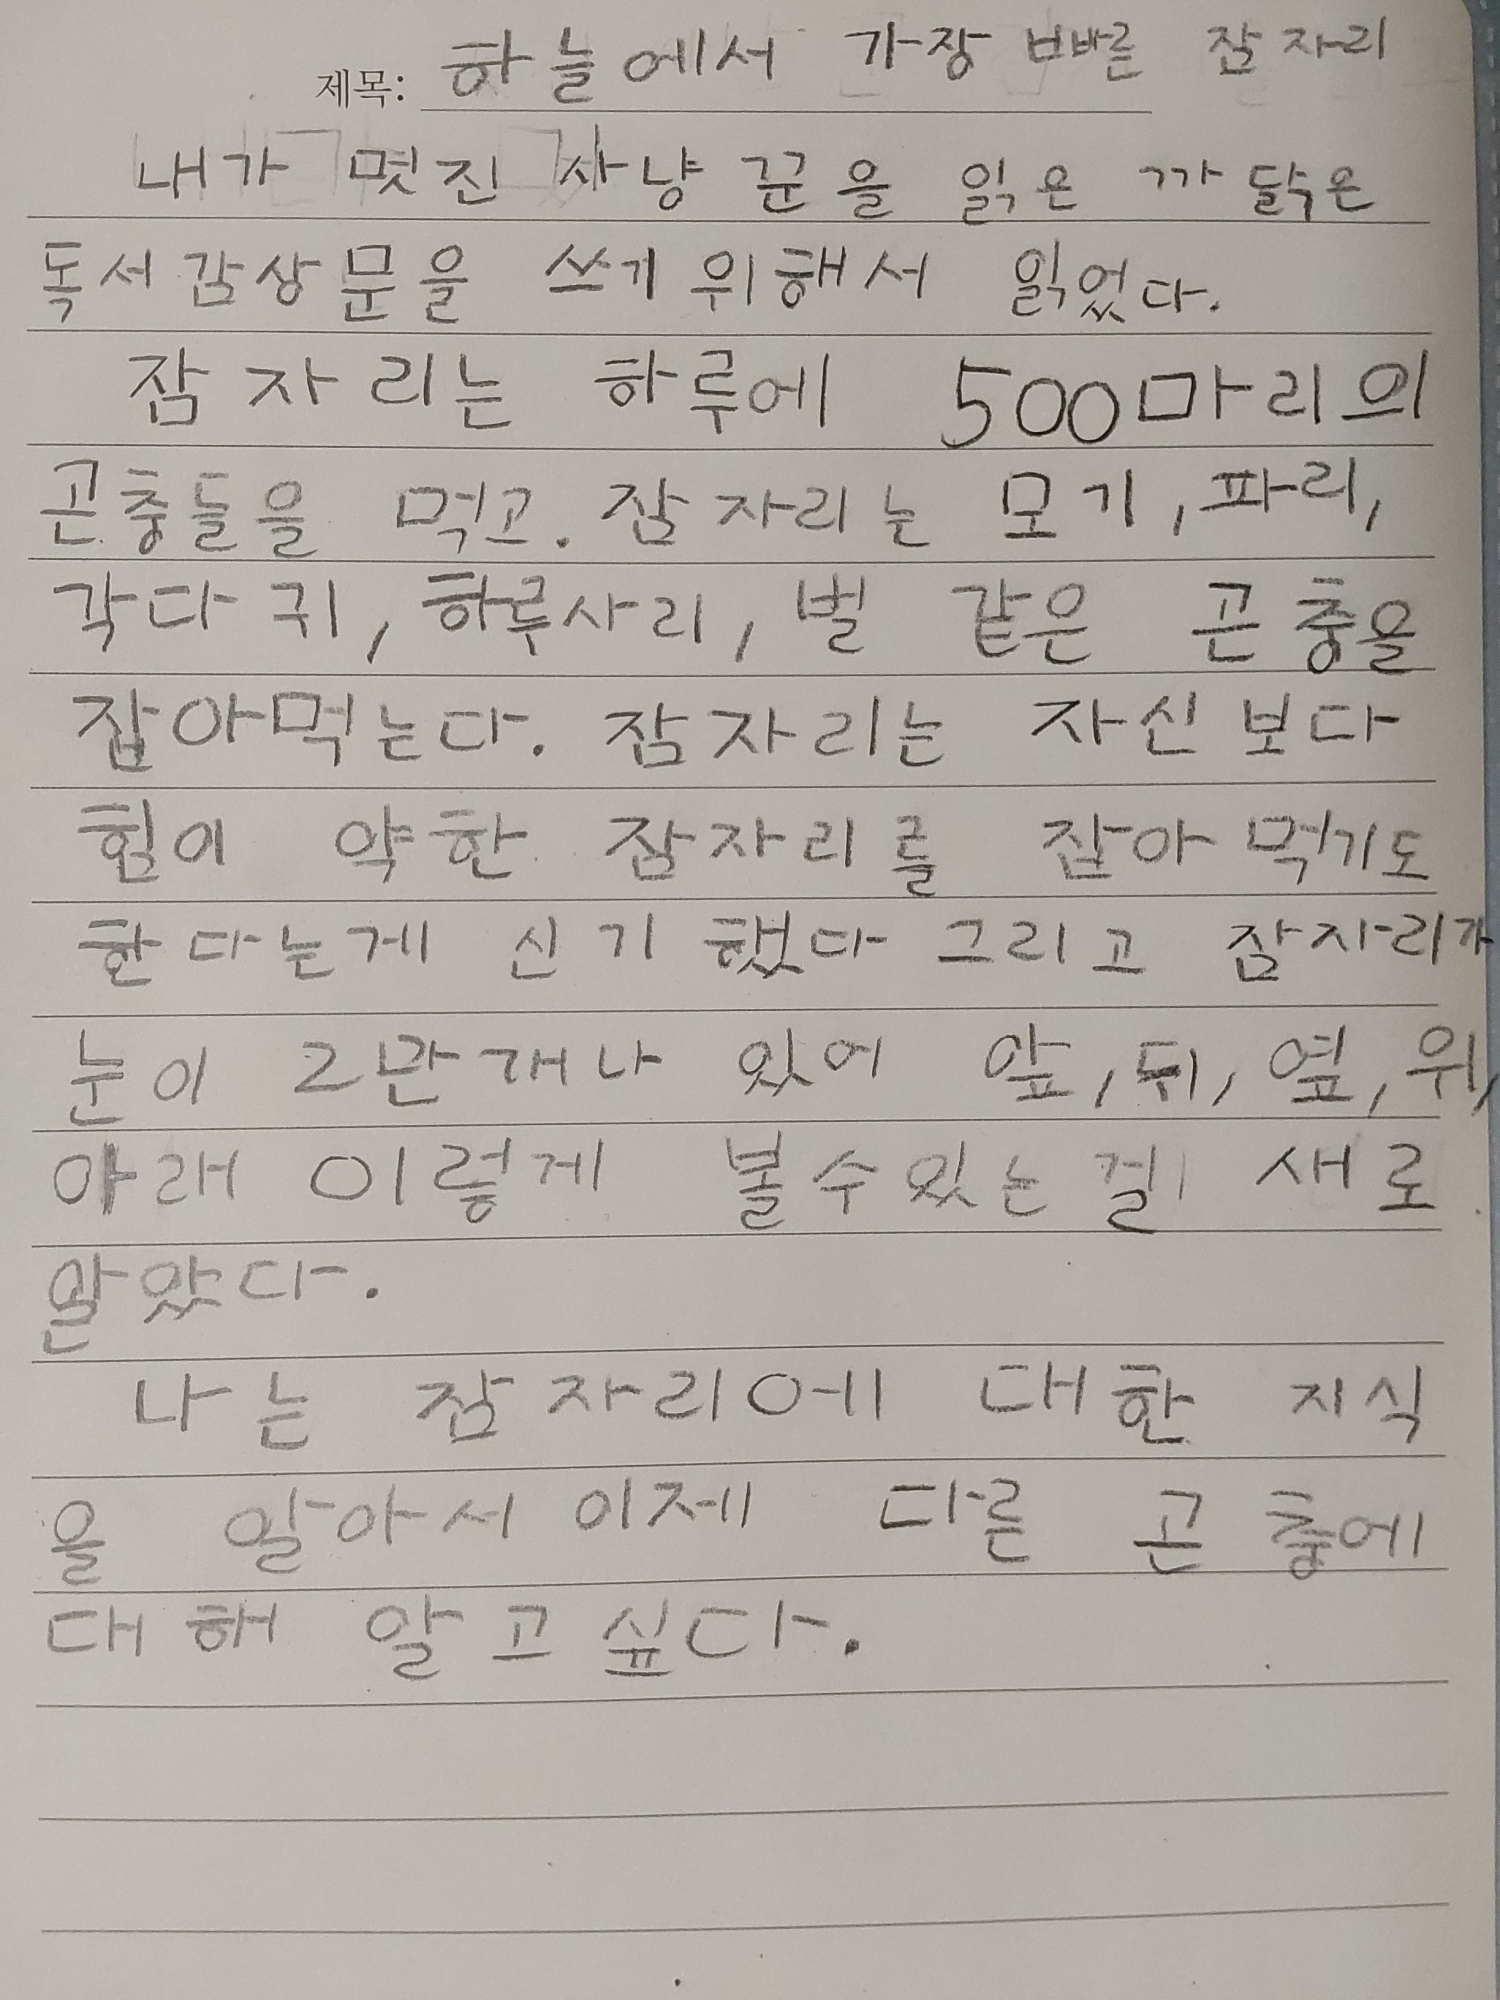 제목: 하늘에서 가장 빠른 잠자리
내가 멋진 사냥꾼을 읽은 까닭은
독서감상문을 쓰기 위해서 읽었다.
잠자리는 하루에 500마리의
곤충들을 먹고. 잠자리는 모기, 파리,
각다귀, 하루사리, 벌 같은 곤충을
잡아먹는다. 잠자리는 자신보다
힘이 약한 잠자리를 잡아먹기도
한다는게 신기했다 그리고 잠자리가
눈이 2만개나 있어 앞, 뒤, 옆, 위,
아래 이렇게 볼수있는걸 새로
알았다.
나는 잠자리에 대한 지식
을 알아서 이제 다른 곤충에
대해 알고싶다.